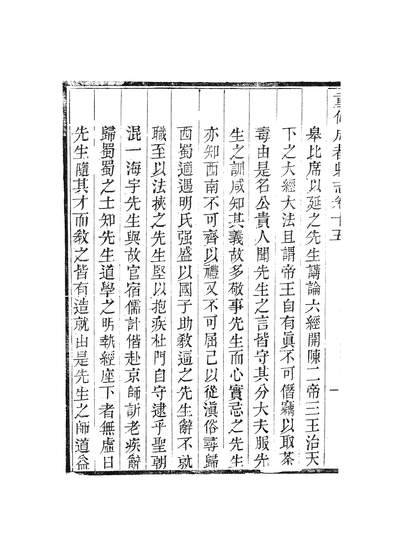 重修成都縣志卷十五
皐比席以延之先生講論六經開陳二帝三王治天
下之大經大法且謂帝王自有眞不可僭竊以取荼
毒由是名公貴人聞先生之言皆守其分大夫服先
生之訓咸知其義故多敬事先生而心實忌之先生
亦知西南不可齊以禮又不可屈己以從滇俗尋歸
西蜀適遇明氏强盛以國子助敎逼之先生辭不就
職至以法挾之先生堅以抱疾杜門自守逮乎聖朝
混一海宇先生與故官宿儒計偕赴京師訢老疾辭
歸蜀蜀之士知先生道學之明執經座下者無虛日
先生隨其才而敎之皆有造就由是先生之師道益